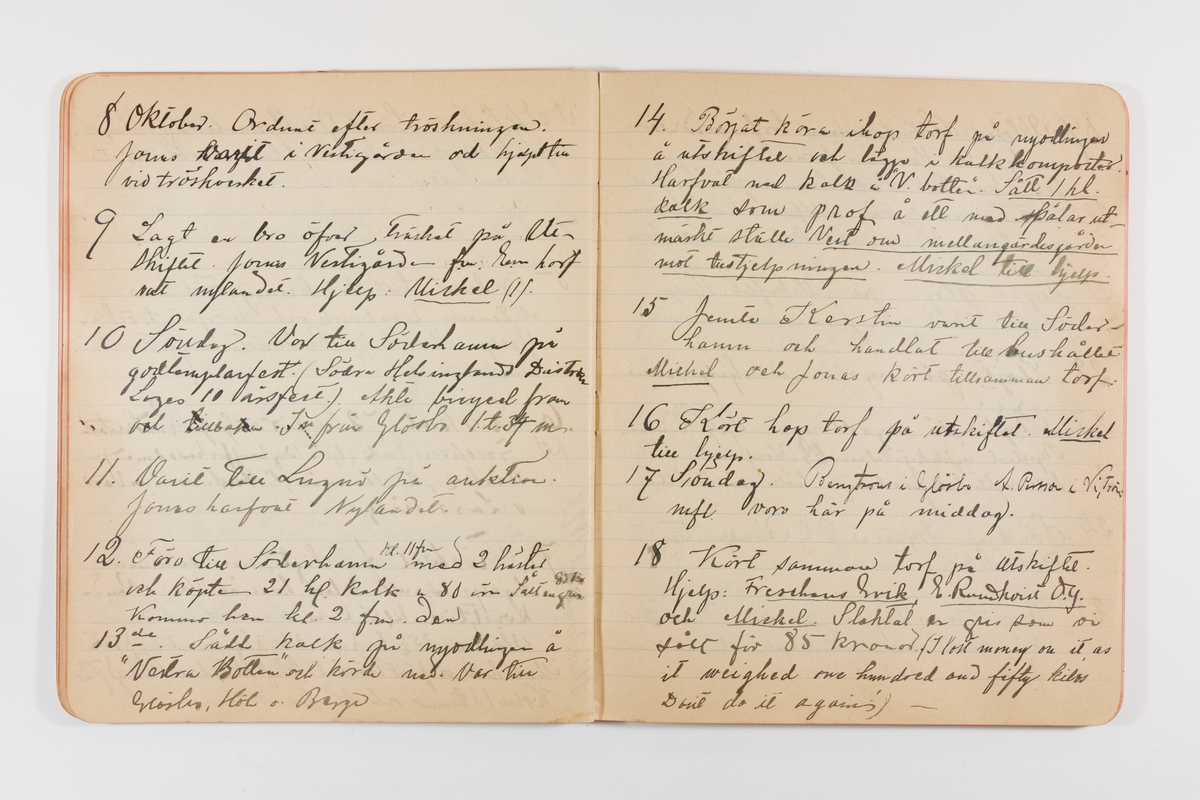 8 Oktober. Ordnat efter tröskningen.
Jonas varit i Vestigården och hjelpt till
vid tröskverket.
9 Lagt en bro öfver trusket på Ut-
skiftet. Jonas Vestigården fm. Em harf
vat nylandet. Hjelp: Mickel (1).
10 Söndag. Var till Söderhamn på
godtemplarfest. (Södra Helsinglands Distrikts
Loges 10 årsfest.). Åkte bicycel fram
och tillbaka. In från Glösbo 1 t. 34 m.
11. Varit till Lingnö på auktion.
Jonas harfvat Nylandet.
12. Foro till Söderhamn kl. 11 fm med 2 hästar
och köpte 21 hl. kalk a 80 öre
Kommo hem kl. 2 fm. den
13 de. Sådd kalk på nyodlingen å
"Vestra Botten" och körde ned. Var till
Glösbo, Höle o. Berge
14. Börjat köra ihop torf på nyodlingen
å utskiftet och lägga i kalkkomposter.
Harfvat ned kalk å "V. botten". Sått 1 hl.
kalk som prof å ett med pålar ut-
märkt ställe Vest om mellangärdesgården
mot tustjelpningen. Mickel till hjelp.
15 Jemte Kerstin varit till Söder-
hamn och handlat till hushållet
Mickel och Jonas kört tillsamman torf.
16 Kört hop torf på utskiftet. Mickel
till hjelp.
17 Söndag. Bergtroms i Glösbo A. Persson i V.
mfl. voro här på middag.
18 Kört samman torf på utskiftet.
Hjelp: Freschens Erik, E. Rundkvist O.G.
och Mickel. Slaktat en gris som vi
sålt för 85 kronor. (I lost money on it, as
it weighed one hundred and fifty kilos
Dont do it again!) —